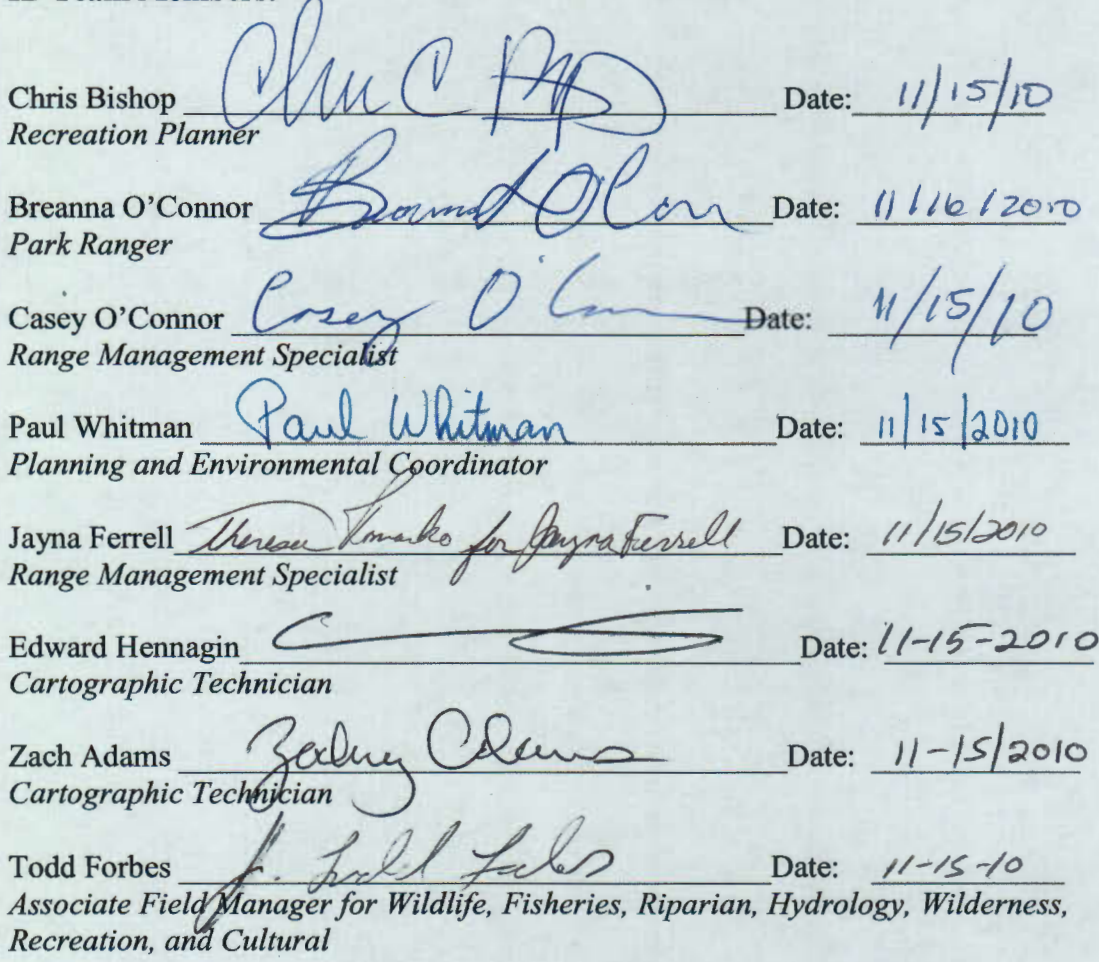 ID Team Members:
Chris Bishop Date: 11/15/10
Recreation Planner
Breanna O'Connor Date: 11/16/2010
Park Ranger
Casey O'Connor Casey O' Date: 11/15/10
Range Management Specialist
Paul Whitman Paul Whitman Date: 11/15/2010
Planning and Environmental Coordinator
Jayna Ferrell Theresa for Jayna Ferrell Date: 11/15/2010
Range Management Specialist
Edward Hennagin Date: 11-15-2010
Cartographic Technician
Zach Adams Date: 11-15/2010
Cartographic Technician
Todd Forbes J. Todd Forbes Date: 11-15-10
Associate Field Manager for Wildlife, Fisheries, Riparian, Hydrology, Wilderness,
Recreation, and Cultural